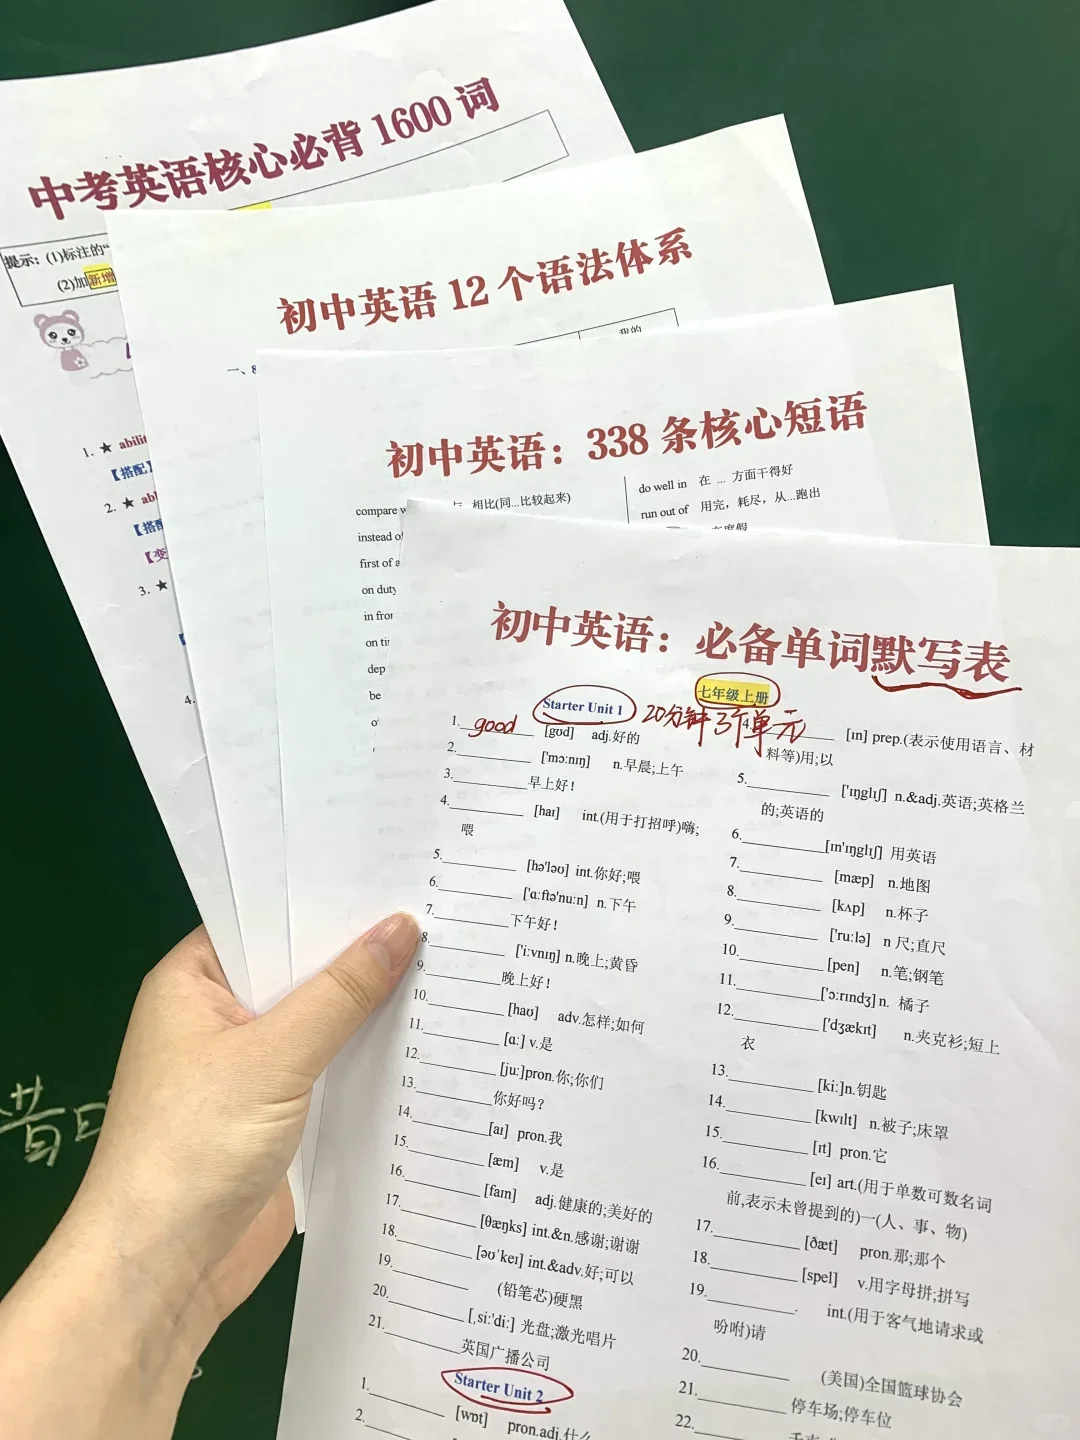 中考英语核心必背 1600 词
提示：(1)标注的“
(2)加新增
1. ★
【搭配】
2. ★
3. ★
4.
初中英语 12 个语法体系
我的
一、
初中英语：338 条核心短语
compare 相比(同...比较起来)
instead
first of
on duty
in
on
be
do well in 在 ... 方面干得好
run out of 用完，耗尽，从...跑出
初中英语：必备单词默写表
七年级上册
Starter Unit 1 20分钟3个单元
1. good [gʊd] adj.好的
2.________ ['mɔːnɪŋ] n.早晨;上午
3.________ 早上好!
4.________ [haɪ] int.(用于打招呼)嗨;
喂
5.________ [hə'ləʊ] int.你好;喂
6.________ ['ɑːftə'nuːn] n.下午
7.________ 下午好!
8.________ ['iːvnɪŋ] n.晚上;黄昏
9.________ 晚上好!
10.________ [haʊ] adv.怎样;如何
11.________ [ɑː] v.是
12.________ [juː]pron.你;你们
13.________ 你好吗?
14.________ [aɪ] pron.我
15.________ [æm] v.是
16.________ [faɪn] adj.健康的;美好的
17.________ [θæŋks] int.&n.感谢;谢谢
18.________ [əʊˈkeɪ] int.&adv.好;可以
19.________ (铅笔芯)硬黑
20.________ [ˌsiːˈdiː] 光盘;激光唱片
21.________ 英国广播公司
Starter Unit 2
1.________ [wɒt] pron.adj.什么
2.________
4.________ [ɪn] prep.(表示使用语言、材
料等)用;以
5.________ ['ɪŋglɪʃ] n.&adj.英语;英格兰
的;英语的
6.________ [ɪn'ɪŋglɪʃ] 用英语
7.________ [mæp] n.地图
8.________ [kʌp] n.杯子
9.________ ['ruːlə] n 尺;直尺
10.________ [pen] n.笔;钢笔
11.________ ['ɔːrɪndʒ] n. 橘子
12.________ ['dʒækɪt] n.夹克衫;短上
衣
13.________ [kiː]n.钥匙
14.________ [kwɪlt] n.被子;床罩
15.________ [ɪt] pron.它
16.________ [eɪ] art.(用于单数可数名词
前,表示未曾提到的)一(人、事、物)
17.________ [ðæt] pron.那;那个
18.________ [spel] v.用字母拼;拼写
19.________. int.(用于客气地请求或
吩咐)请
20.________ (美国)全国篮球协会
21.________ 停车场;停车位
22.________
昔日